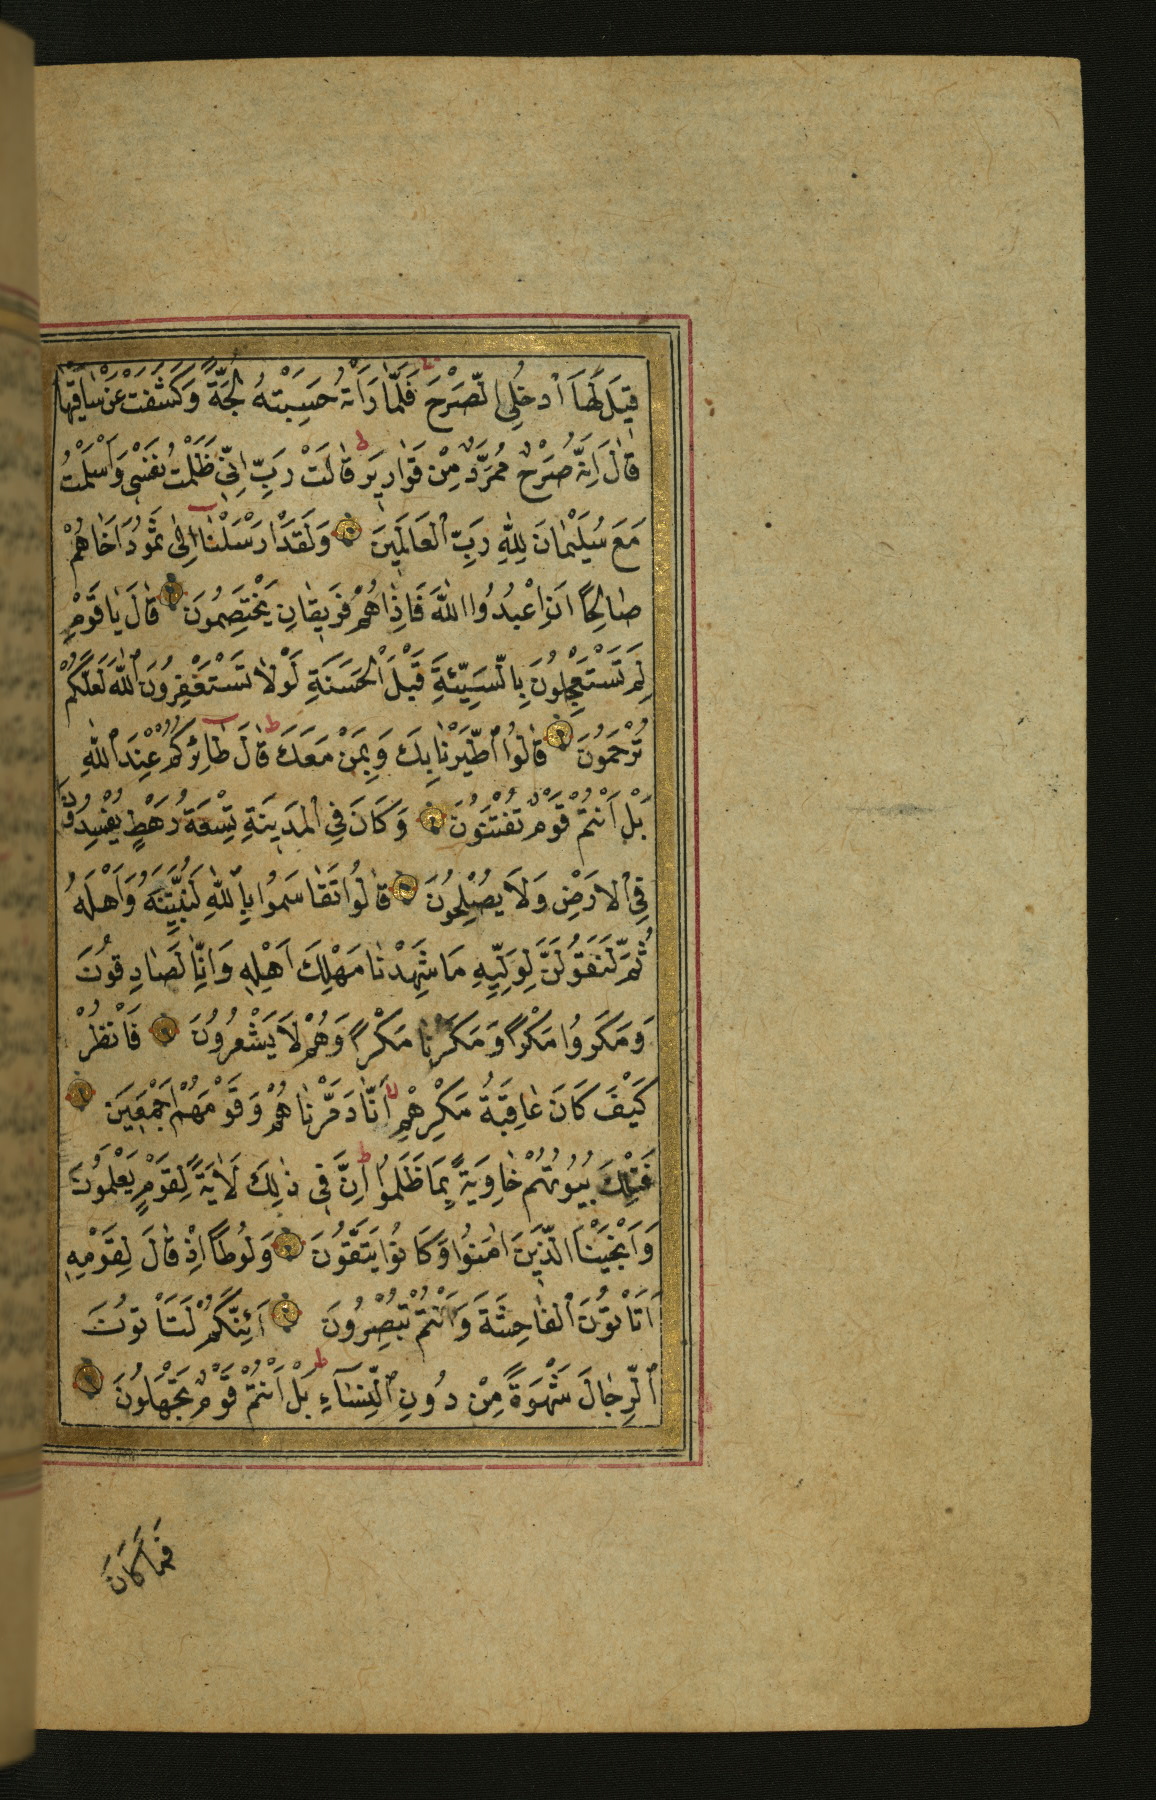 قِيلَ لَهَا ادْخُلِي الصَّرْحَ فَلَمَّا رَاَتْهُ حَسِبَتْهُ لُجَّةً وَكَشَفَتْ عَنْ سَاقَيْهَا
قَالَ اِنَّهُ صَرْحٌ مُمَرَّدٌ مِنْ قَوَارِيرَ قَالَتْ رَبِّ اِنِّي ظَلَمْتُ نَفْسِي وَاَسْلَمْتُ
مَعَ سُلَيْمَانَ لِلّٰهِ رَبِّ الْعَالَمِينَ وَلَقَدْ اَرْسَلْنَا اِلٰى ثَمُودَ اَخَاهُمْ
صَالِحًا اَنِ اعْبُدُوا اللّٰهَ فَاِذَا هُمْ فَرِيقَانِ يَخْتَصِمُونَ قَالَ يَا قَوْمِ
لِمَ تَسْتَعْجِلُونَ بِالسَّيِّئَةِ قَبْلَ الْحَسَنَةِ لَوْلَا تَسْتَغْفِرُونَ اللّٰهَ لَعَلَّكُمْ
تُرْحَمُونَ قَالُوا اطَّيَّرْنَا بِكَ وَبِمَنْ مَعَكَ قَالَ طَائِرُكُمْ عِنْدَ اللّٰهِ
بَلْ اَنْتُمْ قَوْمٌ تُفْتَنُونَ وَكَانَ فِي الْمَدِينَةِ تِسْعَةُ رَهْطٍ يُفْسِدُونَ
فِي الْاَرْضِ وَلَا يُصْلِحُونَ قَالُوا تَقَاسَمُوا بِاللّٰهِ لَنُبَيِّتَنَّهُ وَاَهْلَهُ
ثُمَّ لَنَقُولَنَّ لِوَلِيِّهِ مَا شَهِدْنَا مَهْلِكَ اَهْلِهِ وَاِنَّا لَصَادِقُونَ
وَمَكَرُوا مَكْرًا وَمَكَرْنَا مَكْرًا وَهُمْ لَا يَشْعُرُونَ فَانْظُرْ
كَيْفَ كَانَ عَاقِبَةُ مَكْرِهِمْ اَنَّا دَمَّرْنَاهُمْ وَقَوْمَهُمْ اَجْمَعِينَ
فَتِلْكَ بُيُوتُهُمْ خَاوِيَةً بِمَا ظَلَمُوا اِنَّ فِي ذٰلِكَ لَاٰيَةً لِقَوْمٍ يَعْلَمُونَ
وَاَنْجَيْنَا الَّذِينَ اٰمَنُوا وَكَانُوا يَتَّقُونَ وَلُوطًا اِذْ قَالَ لِقَوْمِهِ
اَتَاْتُونَ الْفَاحِشَةَ وَاَنْتُمْ تُبْصِرُونَ اَئِنَّكُمْ لَتَاْتُونَ
الرِّجَالَ شَهْوَةً مِنْ دُونِ النِّسَآءِ بَلْ اَنْتُمْ قَوْمٌ تَجْهَلُونَ
فَمَا كَانَ